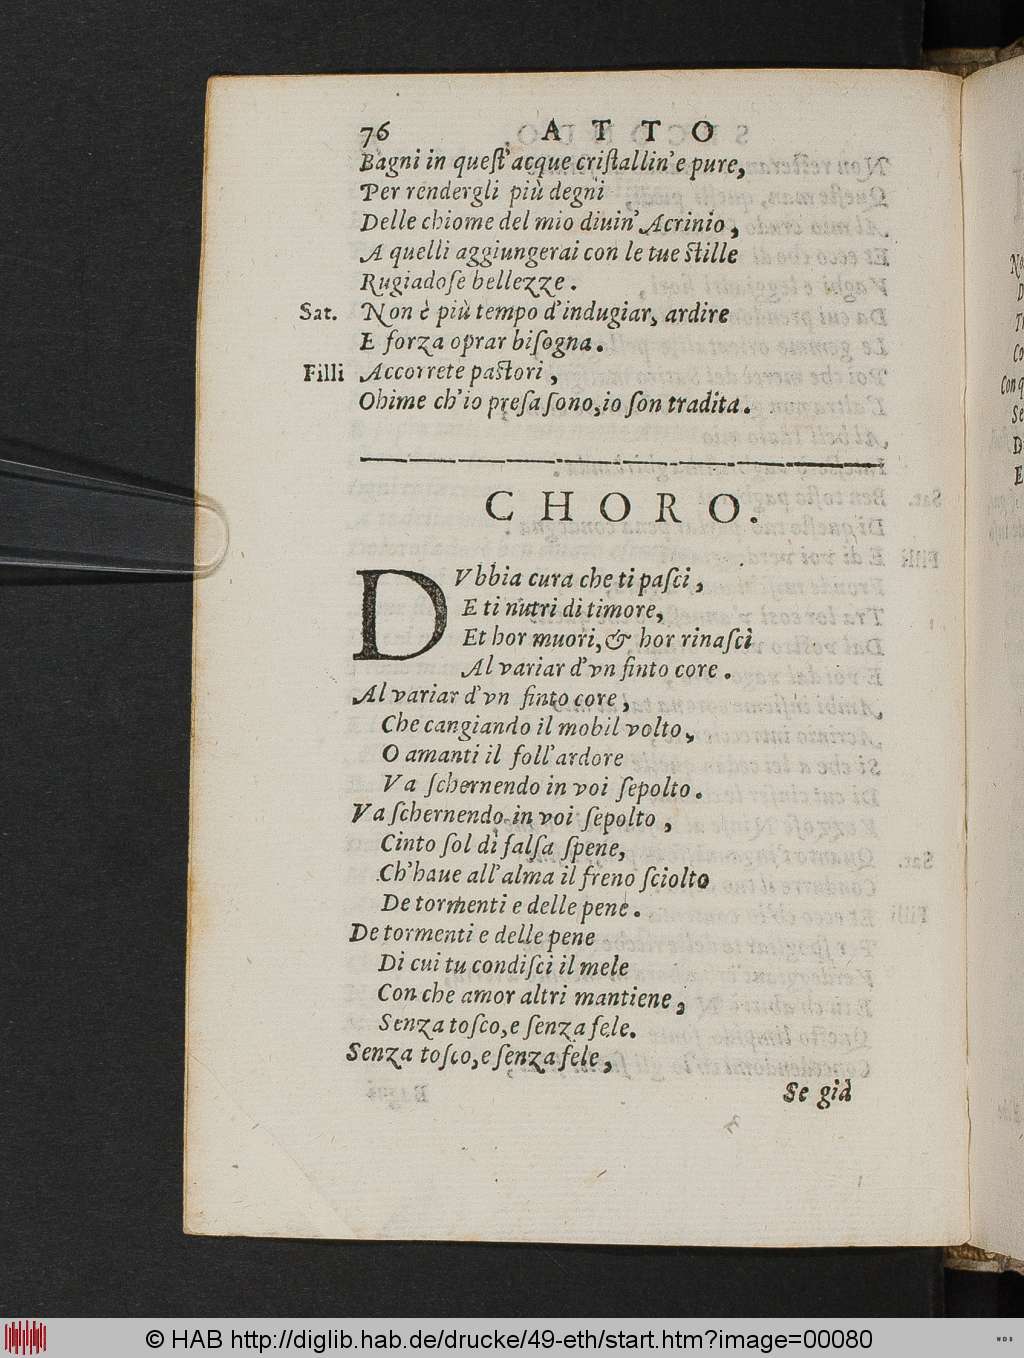 76 ATTO
Bagni in queſt'acque criſtallin'e pure,
Per rendergli più degni
Delle chiome del mio diuin' Acrinio,
A quelli aggiungerai con le tue ſtille
Rugiadoſe bellezze.
Sat. Non è più tempo d'indugiar, ardire
E forza oprar biſogna.
Filli Accorrete paſtori,
Ohime ch'io preſa ſono, io ſon tradita.
CHORO.
DVbbia cura che ti paſci,
E ti nutri di timore,
Et hor muori, & hor rinaſci
Al variar d'vn finto core.
Al variar d'vn finto core,
Che cangiando il mobil volto,
O amanti il foll'ardore
Va ſchernendo in voi ſepolto.
Va ſchernendo in voi ſepolto,
Cinto ſol di falſa ſpene,
Ch'haue all'alma il freno ſciolto
De tormenti e delle pene.
De tormenti e delle pene
Di cui tu condiſci il mele
Con che amor altri mantiene,
Senza toſco, e ſenza fele.
Senza toſco, e ſenza fele,
Se già
© HAB http://diglib.hab.de/drucke/49-eth/start.htm?image=00080